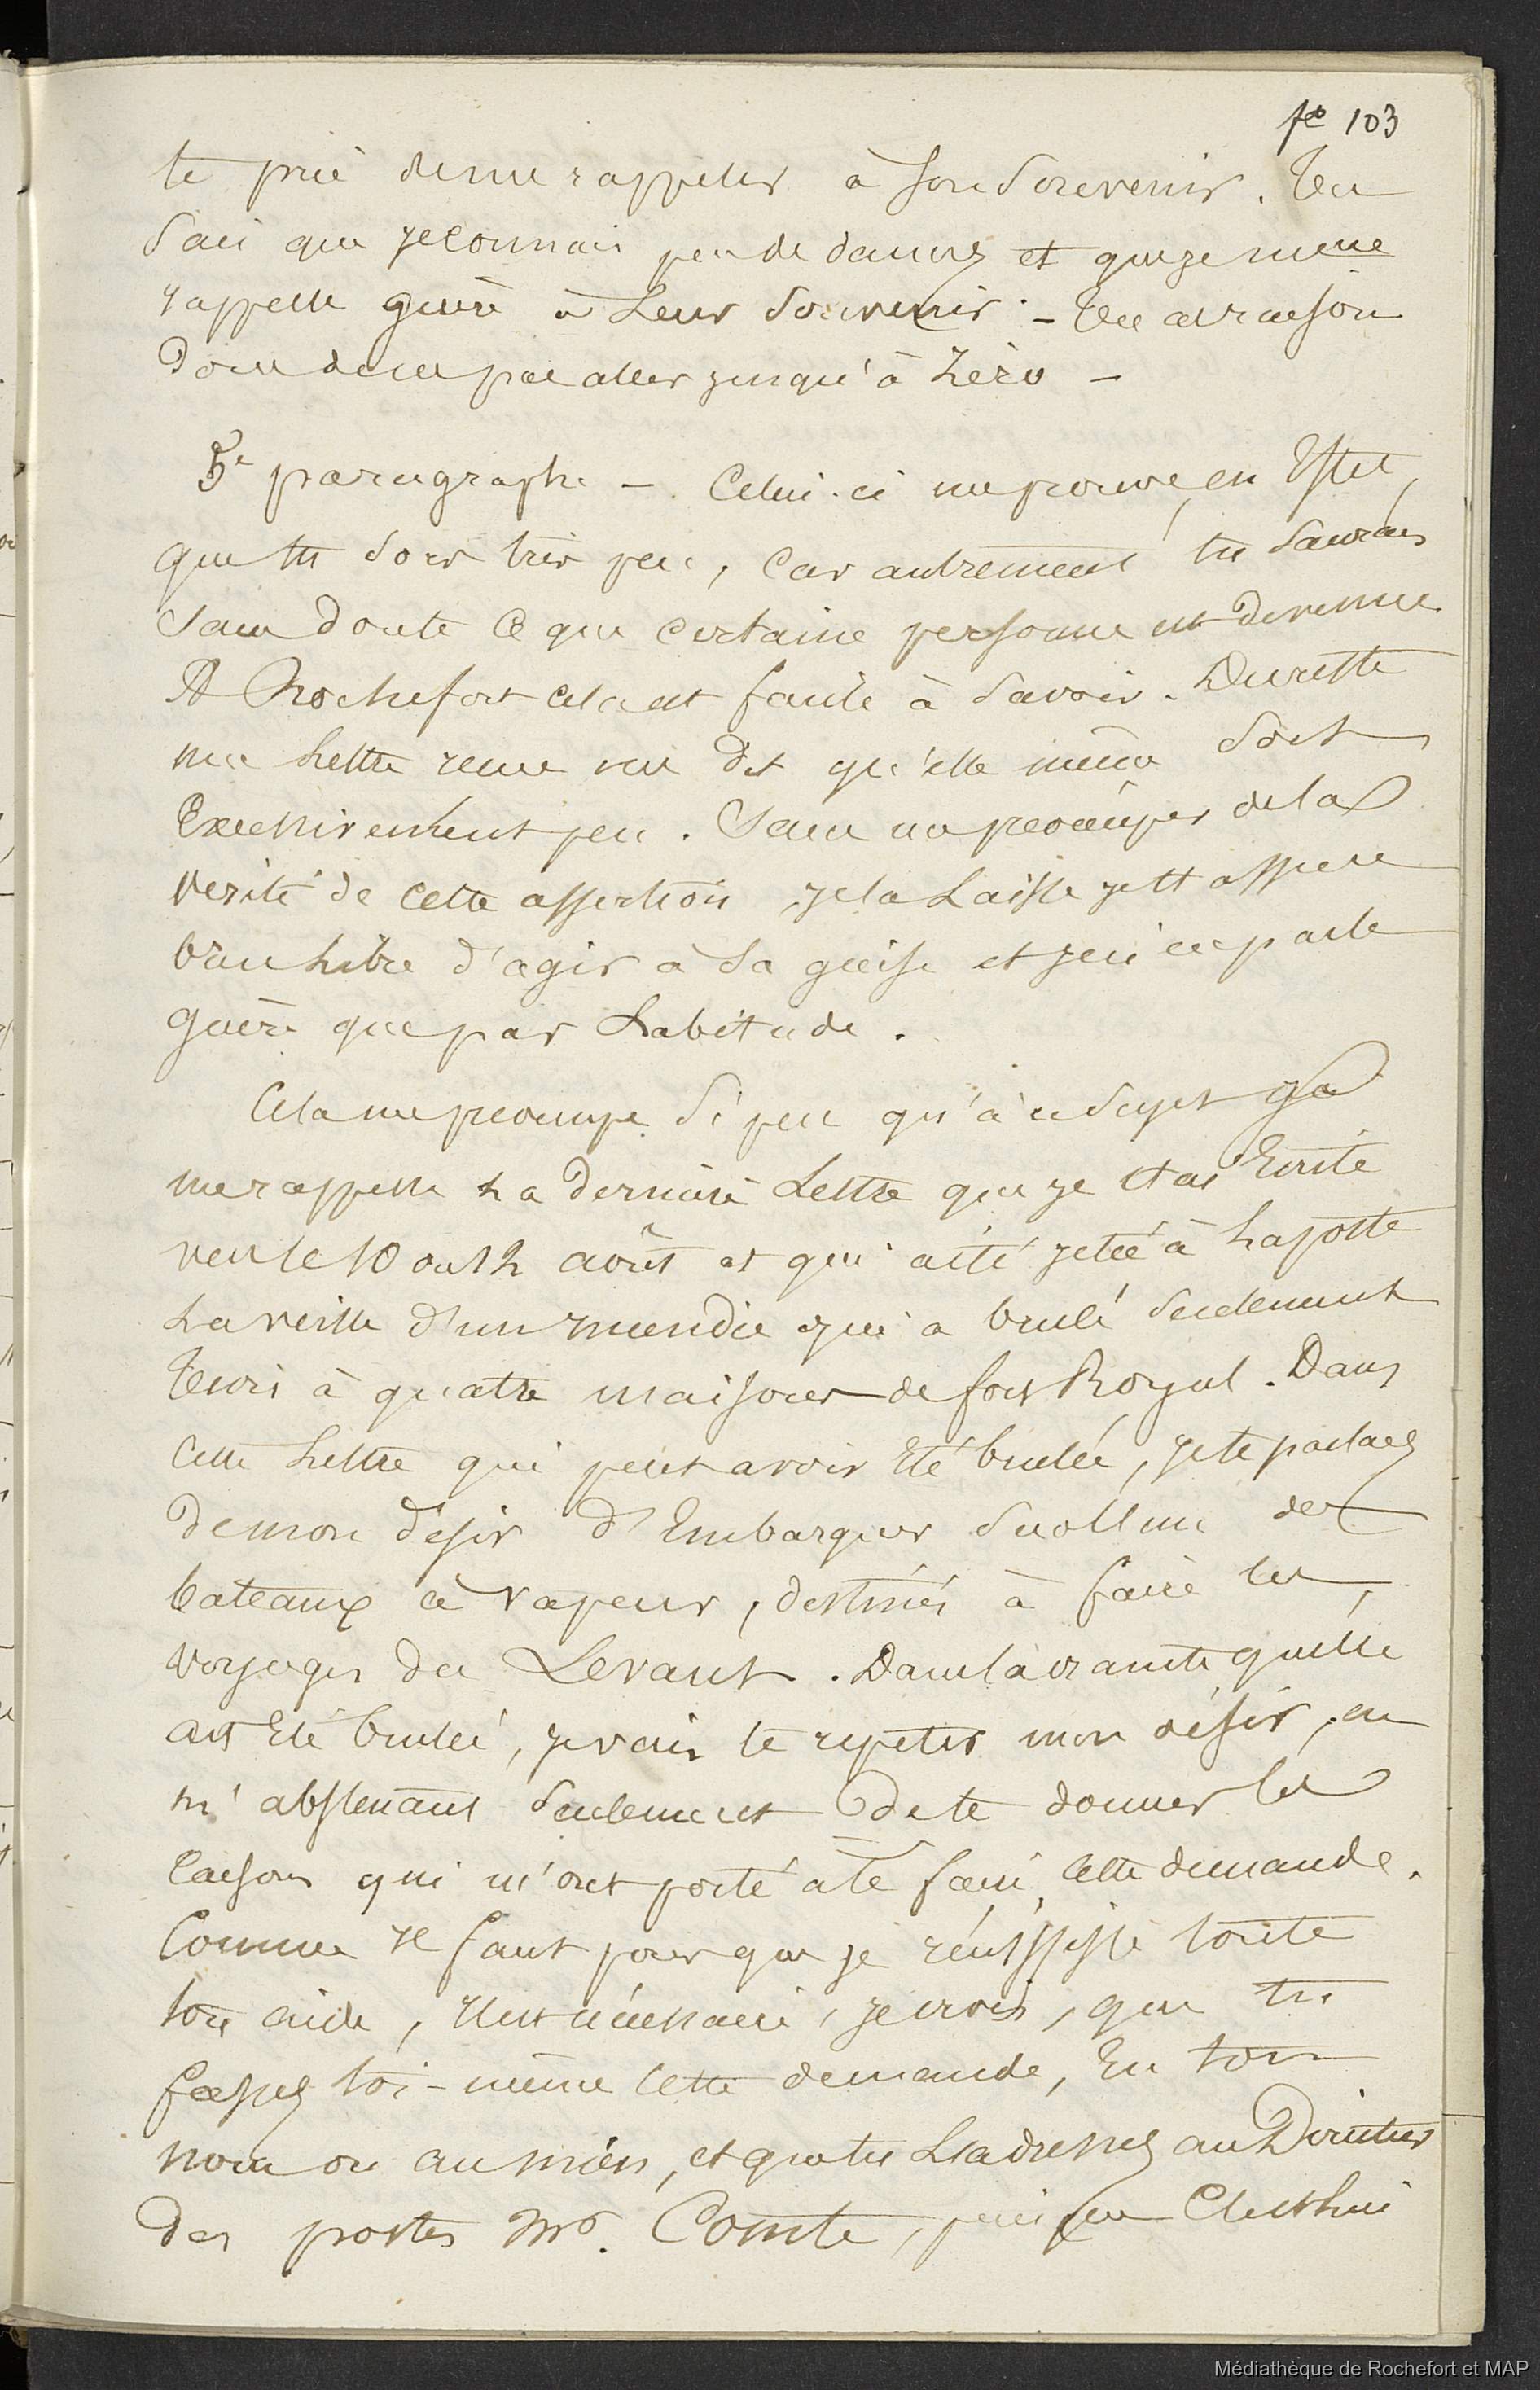 fo 103
te prie de me rappeler à son souvenir. Tu
sais que je connais peu de dames et que je ne me
rappelle guère à leur souvenir. - Tu as raison
donc de ne pas aller jusqu'à zéro -
5e paragraphe -. Celui-ci me prouve, en effet,
que tu sors très peu, car autrement tu saurais
sans doute ce que certaine personne est devenue
A Rochefort cela est facile à savoir. Du reste
ma lettre reçue me dit qu'elle même sort
Excessivement peu. Sans me préoccuper de la
vérité de cette assertion, je la laisse je t'assure
bien libre d'agir à sa guise et je n'en parle
guère que par habitude.
Cela me préoccupe si peu qu'à ce sujet je
me rappelle la dernière Lettre que je t'ai Ecrite
vers le 10 ou 12 août et qui a été jetée à la poste
la veille d'un incendie qui a brulé seulement
trois à quatre maisons de fort Royal. Dans
cette lettre qui peut avoir été brulée, je te parlais
de mon désir d'Embarquer sur l'un des
bateaux à vapeur, destinés à faire les
voyages du Levant. Dans la crainte qu'elle
ait été brulée, je vais te répéter mon désir, en
m'abstenant seulement de te donner les
raisons qui m'ont porté à te faire cette demande.
Comme il faut pour que je réussisse toute
ton aide, il est nécessaire, je crois, que tu
fasses toi-même cette demande, En ton
nom ou au mien, et que tu l'adresses au Directeur
des postes Mr. Comte, puisque C'est lui
Médiathèque de Rochefort et MAP